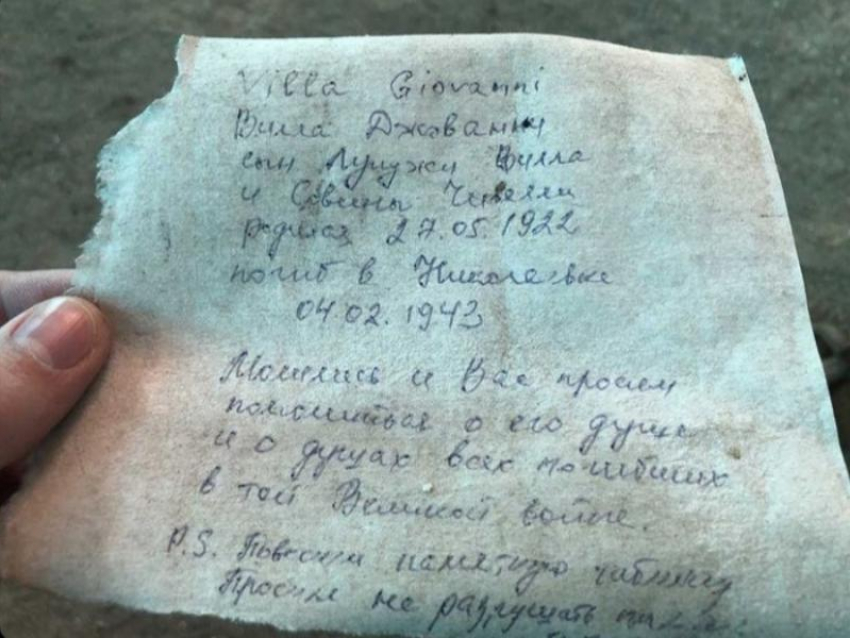 Villa Giovanni
Вилла Джованни
сын Луиджи Вилла
и Савины Чивелли
родился 27.05.1922
погиб в Николаевке
04.02.1943
Молились и Вас просим
помолиться о его душе
и о душах всех погибших
в той Великой войне.
P.S. Повесили памятную табличку
Просим не разрушать